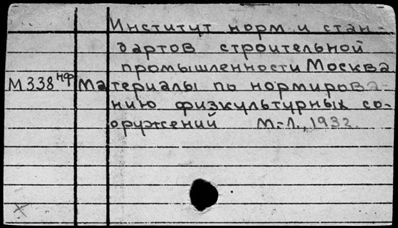 Институт норм и стан-
дартов строительной
промышленности Москва
М338нф Материалы по нормирова-
нию физкультурных со-
оружений М.-Л., 1932.